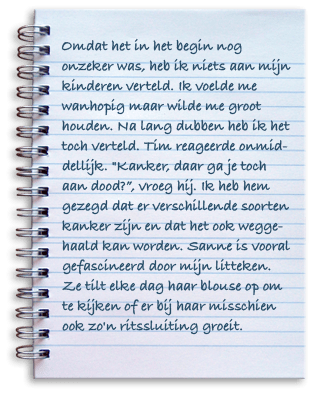 Omdat het in het begin nog
onzeker was, heb ik niets aan mijn
kinderen verteld. Ik voelde me
wanhopig maar wilde me groot
houden. Na lang dubben heb ik het
toch verteld. Tim reageerde onmid-
dellijk. "Kanker, daar ga je toch
aan dood?", vroeg hij. Ik heb hem
gezegd dat er verschillende soorten
kanker zijn en dat het ook wegge-
haald kan worden. Sanne is vooral
gefascineerd door mijn litteken.
Ze tilt elke dag haar blouse op om
te kijken of er bij haar misschien
ook zo'n ritssluiting groeit.